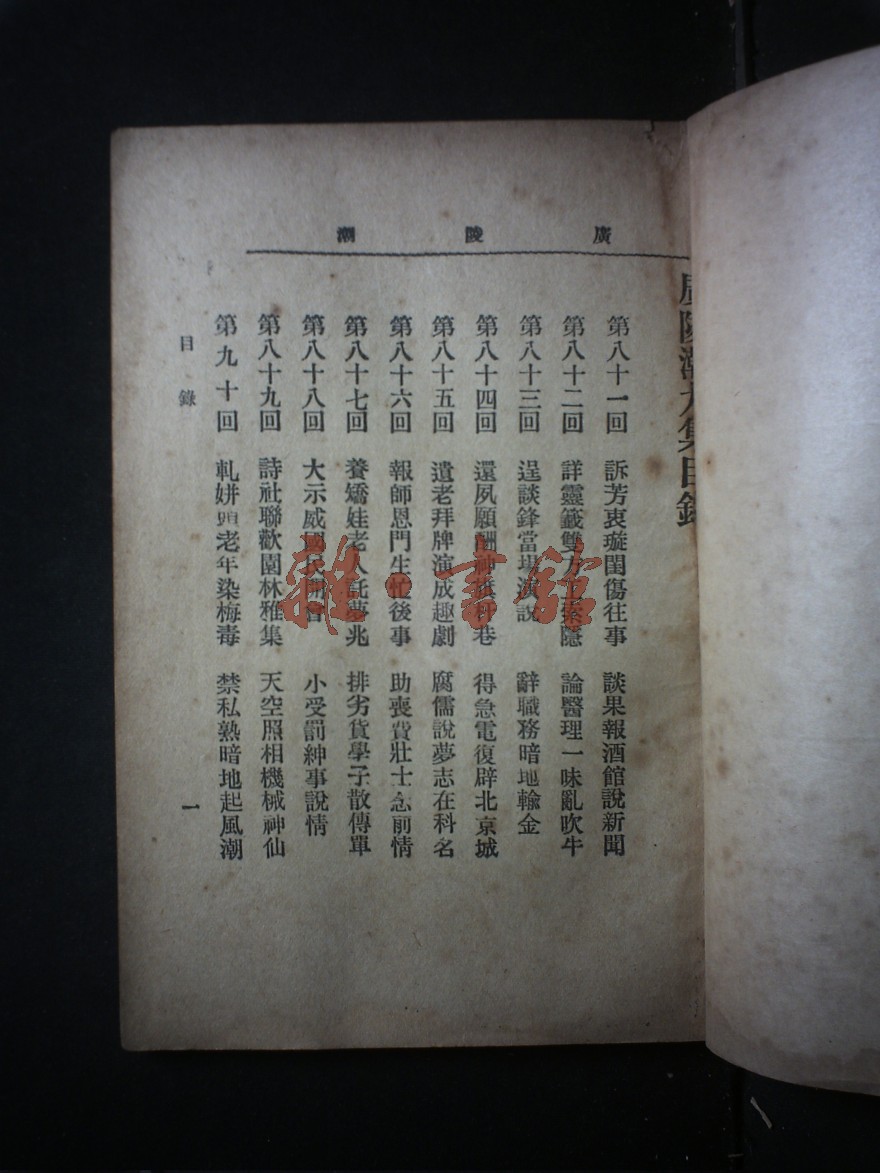 廣陵潮
廣陵潮九集目錄
第八十一回 訴芳衷璇閨傷往事 談果報酒館說新聞
第八十二回 詳靈籤雙方索隱 論醫理一味亂吹牛
第八十三回 逞談鋒當場演說 辭職務暗地輸金
第八十四回 還夙願酬神 巷 得急電復辟北京城
第八十五回 遺老拜牌演成趣劇 腐儒說夢志在科名
第八十六回 報師恩門生忙後事 助喪費壯士念前情
第八十七回 養嬌娃老人託夢兆 排劣貨學子散傳單
第八十八回 大示威國民開會 小受罰紳事說情
第八十九回 詩社聯歡園林雅集 天空照相機械神仙
第九十回 軋姘頭老年染梅毒 禁私熟暗地起風潮
目錄
一
雜·書館